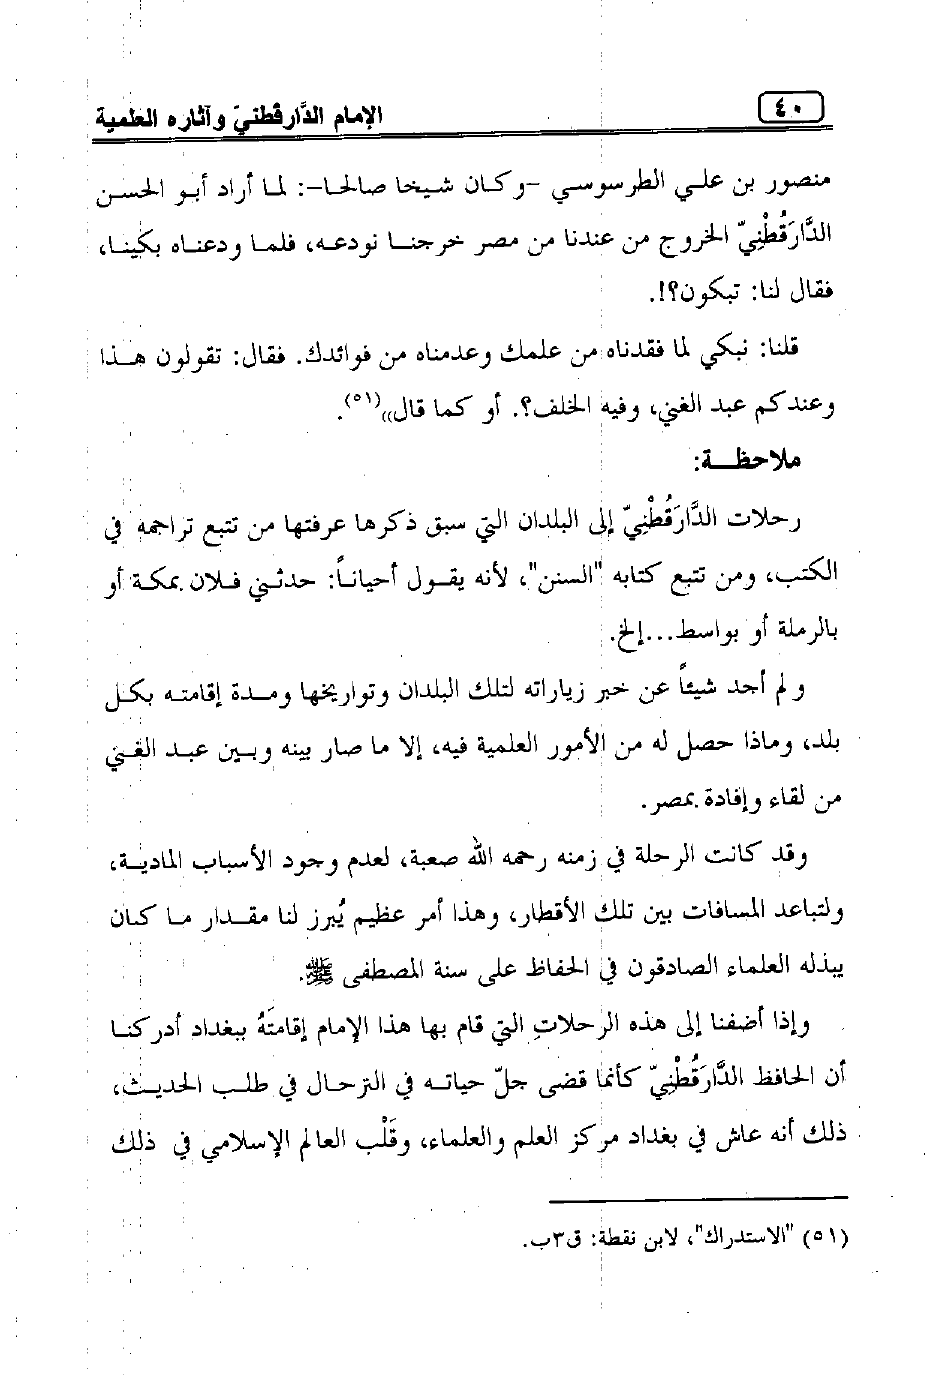 ٤٠
الإمام الدَّارقُطنيّ وآثاره العلمية
منصور بن علي الطرسوسي -وكان شيخا صالحا-: لما أراد أبو الحسن
الدَّارَقُطْنِيّ الخروج من عندنا من مصر خرجنا نودعه، فلما ودعناه بكينا،
فقال لنا: تبكون؟!.
قلنا: نبكي لما فقدناه من علمك وعدمناه من فوائدك. فقال: تقولون هذا
وعندكم عبد الغني، وفيه الخلف؟. أو كما قال»(٥١).
ملاحظة:
رحلات الدَّارَقُطْنِيّ إلى البلدان التي سبق ذكرها عرفتها من تتبع تراجمه في
الكتب، ومن تتبع كتابه "السنن"، لأنه يقول أحياناً: حدثني فلان بمكة أو
بالرملة أو بواسط...إلخ.
و لم أجد شيئاً عن خبر زياراته لتلك البلدان وتواريخها ومدة إقامته بكل
بلد، وماذا حصل له من الأمور العلمية فيه، إلا ما صار بينه وبين عبد الغني
من لقاء وإفادة بمصر.
وقد كانت الرحلة في زمنه رحمه الله صعبة، لعدم وجود الأسباب المادية،
ولتباعد المسافات بين تلك الأقطار، وهذا أمر عظيم يُبرز لنا مقدار ما كان
يبذله العلماء الصادقون في الحفاظ على سنة المصطفى ﷺ.
وإذا أضفنا إلى هذه الرحلاتِ التي قام بها هذا الإمام إقامتَهُ ببغداد أدركنا
أن الحافظ الدَّارَقُطْنِيّ كأنما قضى جلّ حياته في الترحال في طلب الحديث،
ذلك أنه عاش في بغداد مركز العلم والعلماء، وقَلْب العالم الإسلامي في ذلك
(٥١) "الاستدراك"، لابن نقطة: ق٣ب.